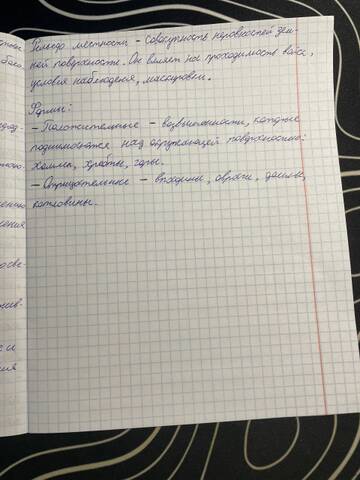 Рельеф местности - совокупность неровностей зем-
ной поверхности. Он влияет на проходимость войск,
условия наблюдения, маскировки.
Формы:
- Положительные - возвышенности, которые
поднимаются над окружающей поверхностью:
холмы, хребты, горы.
- Отрицательные - впадины, овраги, долины,
котловины.